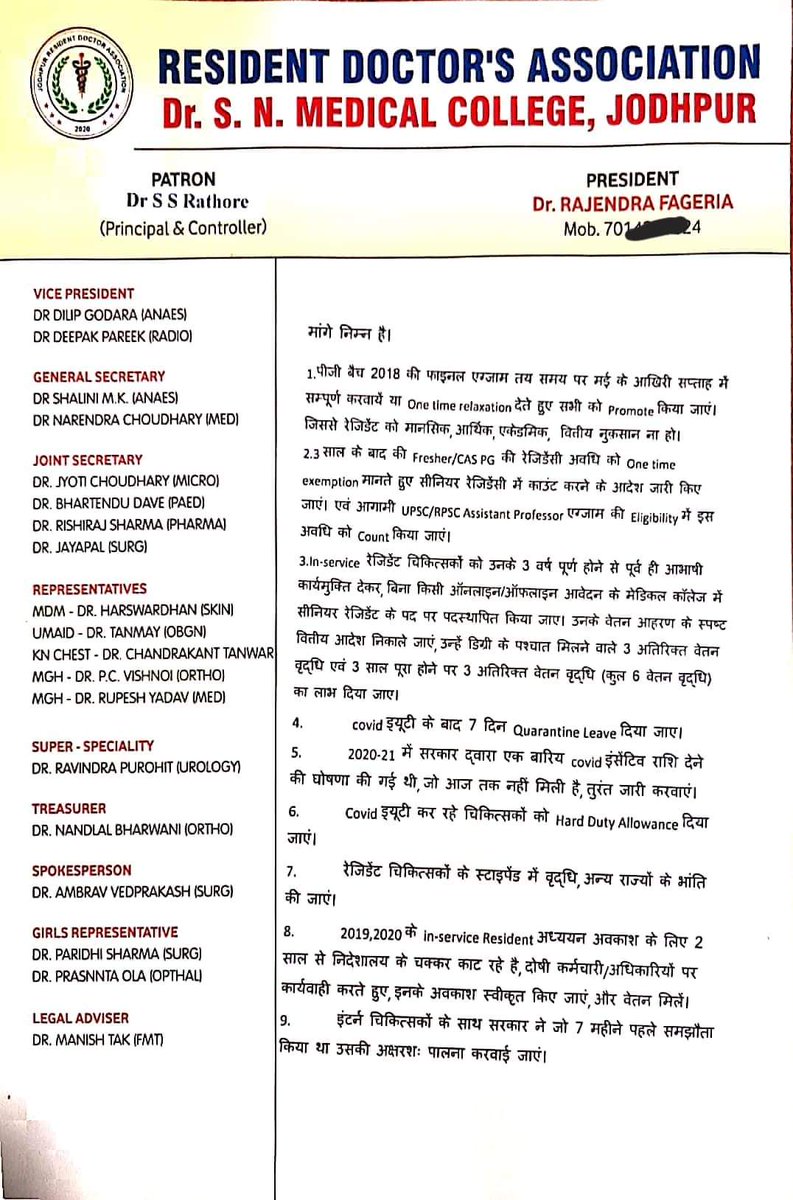 JODHPUR RESIDENT DOCTOR ASSOCIATION
2020
RESIDENT DOCTOR'S ASSOCIATION
Dr. S. N. MEDICAL COLLEGE, JODHPUR
PATRON
Dr S S Rathore
(Principal & Controller)
PRESIDENT
Dr. RAJENDRA FAGERIA
Mob. 701 24
VICE PRESIDENT
DR DILIP GODARA (ANAES)
DR DEEPAK PAREEK (RADIO)
GENERAL SECRETARY
DR SHALINI M.K. (ANAES)
DR NARENDRA CHOUDHARY (MED)
JOINT SECRETARY
DR. JYOTI CHOUDHARY (MICRO)
DR. BHARTENDU DAVE (PAED)
DR. RISHIRAJ SHARMA (PHARMA)
DR. JAYAPAL (SURG)
REPRESENTATIVES
MDM - DR. HARSWARDHAN (SKIN)
UMAID - DR. TANMAY (OBGN)
KN CHEST - DR. CHANDRAKANT TANWAR
MGH - DR. P.C. VISHNOI (ORTHO)
MGH - DR. RUPESH YADAV (MED)
SUPER - SPECIALITY
DR. RAVINDRA PUROHIT (UROLOGY)
TREASURER
DR. NANDLAL BHARWANI (ORTHO)
SPOKESPERSON
DR. AMBRAV VEDPRAKASH (SURG)
GIRLS REPRESENTATIVE
DR. PARIDHI SHARMA (SURG)
DR. PRASNNTA OLA (OPTHAL)
LEGAL ADVISER
DR. MANISH TAK (FMT)
मांगे निम्न है।
1.पीजी बैच 2018 की फाइनल एग्जाम तय समय पर मई के आखिरी सप्ताह में
सम्पूर्ण करवायें या One time relaxation देते हुए सभी को Promote किया जाएं।
जिससे रेजिडेंट को मानसिक, आर्थिक, एकेडमिक, वित्तीय नुकसान ना हो।
2.3 साल के बाद की Fresher/CAS PG की रेजिडेंसी अवधि को One time
exemption मानते हुए सीनियर रेजिडेंसी में काउंट करने के आदेश जारी किए
जाएं। एवं आगामी UPSC/RPSC Assistant Professor एग्जाम की Eligibility में इस
अवधि को Count किया जाएं।
3.In-service रेजिडेंट चिकित्सकों को उनके 3 वर्ष पूर्ण होने से पूर्व ही आभाषी
कार्यमुक्ति देकर, बिना किसी ऑनलाइन/ऑफलाइन आवेदन के मेडिकल कॉलेज में
सीनियर रेजिडेंट के पद पर पदस्थापित किया जाए। उनके वेतन आहरण के स्पष्ट
वित्तीय आदेश निकाले जाएं, उन्हें डिग्री के पश्चात मिलने वाले 3 अतिरिक्त वेतन
वृद्धि एवं 3 साल पूरा होने पर 3 अतिरिक्त वेतन वृद्धि (कुल 6 वेतन वृद्धि)
का लाभ दिया जाए।
4. covid ड्यूटी के बाद 7 दिन Quarantine Leave दिया जाए।
5. 2020-21 में सरकार द्वारा एक बारिय covid इंसेंटिव राशि देने
की घोषणा की गई थी, जो आज तक नहीं मिली है, तुरंत जारी करवाएं।
6. Covid ड्यूटी कर रहे चिकित्सकों को Hard Duty Allowance दिया
जाएं।
7. रेजिडेंट चिकित्सकों के स्टाइपेंड में वृद्धि, अन्य राज्यों के भांति
की जाएं।
8. 2019,2020 के in-service Resident अध्ययन अवकाश के लिए 2
साल से निदेशालय के चक्कर काट रहे है, दोषी कर्मचारी/अधिकारियों पर
कार्यवाही करते हुए, इनके अवकाश स्वीकृत किए जाएं, और वेतन मिलें।
9. इंटर्न चिकित्सकों के साथ सरकार ने जो 7 महीने पहले समझौता
किया था उसकी अक्षरशः पालना करवाई जाएं।